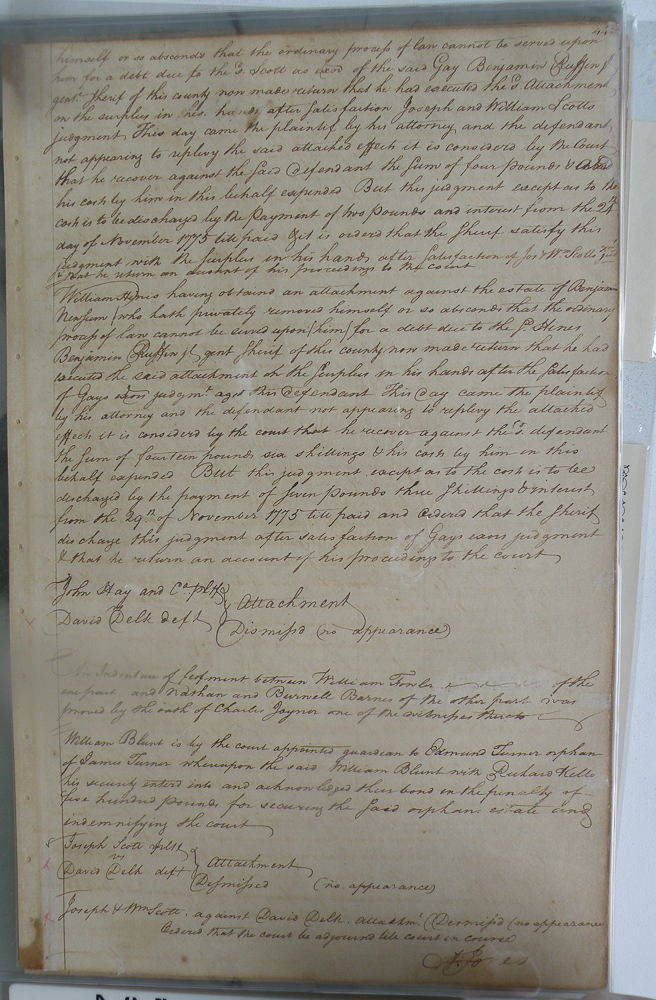 himself or so absconds that the ordinary process of law cannot be served upon
him for a debt due to the sd. Scott as exor of the said Gay Benjamin Ruffin jr
gent. Sherif of this county now made return that he had executed the sd. Attachment
on the surplus in his hands after satisfaction Joseph and William Scotts
judgment. This day came the plaintif by his attorney and the defendant
not appearing to replevy the said attached effects it is considered by the Court
that he recover against the said defendant the sum of four pounds &
his costs by him in this behalf expended But this judgment except as to the
costs is to be dischargd by the payment of two pounds and interest from the 24th
day of November 1775 till paid & it is ordered that the Sherif satisfy this
judgment with the surplus in his hands after satisfaction of Jos & Wm Scotts
& that he return an account of his proceedings to the court
William Hines having obtaind an attachment against the estate of Benjamin
Newsum (who hath privately removed himself or so absconds that the ordinary
process of law cannot be served upon him) for a debt due to the sd. Hines
Benjamin Ruffin jr gent Sherif of this county now made return that he had
executed the said attachment on the surplus in his hands after the satisfaction
of Gays exors judgmt. agst this defendant This day came the plaintif
by his attorney and the defendant not appearing to replevy the attached
effects it is considerd by the court that he recover against the sd. defendant
the sum of fourteen pounds six shillings & his costs by him in this
behalf expended But this judgment except as to the costs is to be
dischargd by the payment of seven pounds three shillings & interest
from the 29th of November 1775 till paid and Ordered that the Sherif
discharge this judgment after satisfaction of Gays exors judgment
& that he return an account of his proceedings to the court
John Hay and Co. pltfs
vs
David Delk deft
Attachment
Dismissd (no appearance)
An Indenture of feofment between William Fowler of the
one part and Nathan and Burwell Barnes of the other part was
proved by the oath of Charles Joyner one of the witnesses thereto
William Blunt is by the court appointed guardian to Edmund Turner orphan
of James Turner whereupon the said William Blunt with Richard Kello
his security enterd into and acknowledged their bond in the penalty of
five hundred pounds for securing the said orphans estate and
indemnifying the court
Joseph Scott pltf
vs
David Delk deft
Attachment
Dismissed (no appearance)
Joseph & Wm Scott against David Delk. Attachmt. (Dismissd (no appearance
Ordered that the court be adjourned till court in course